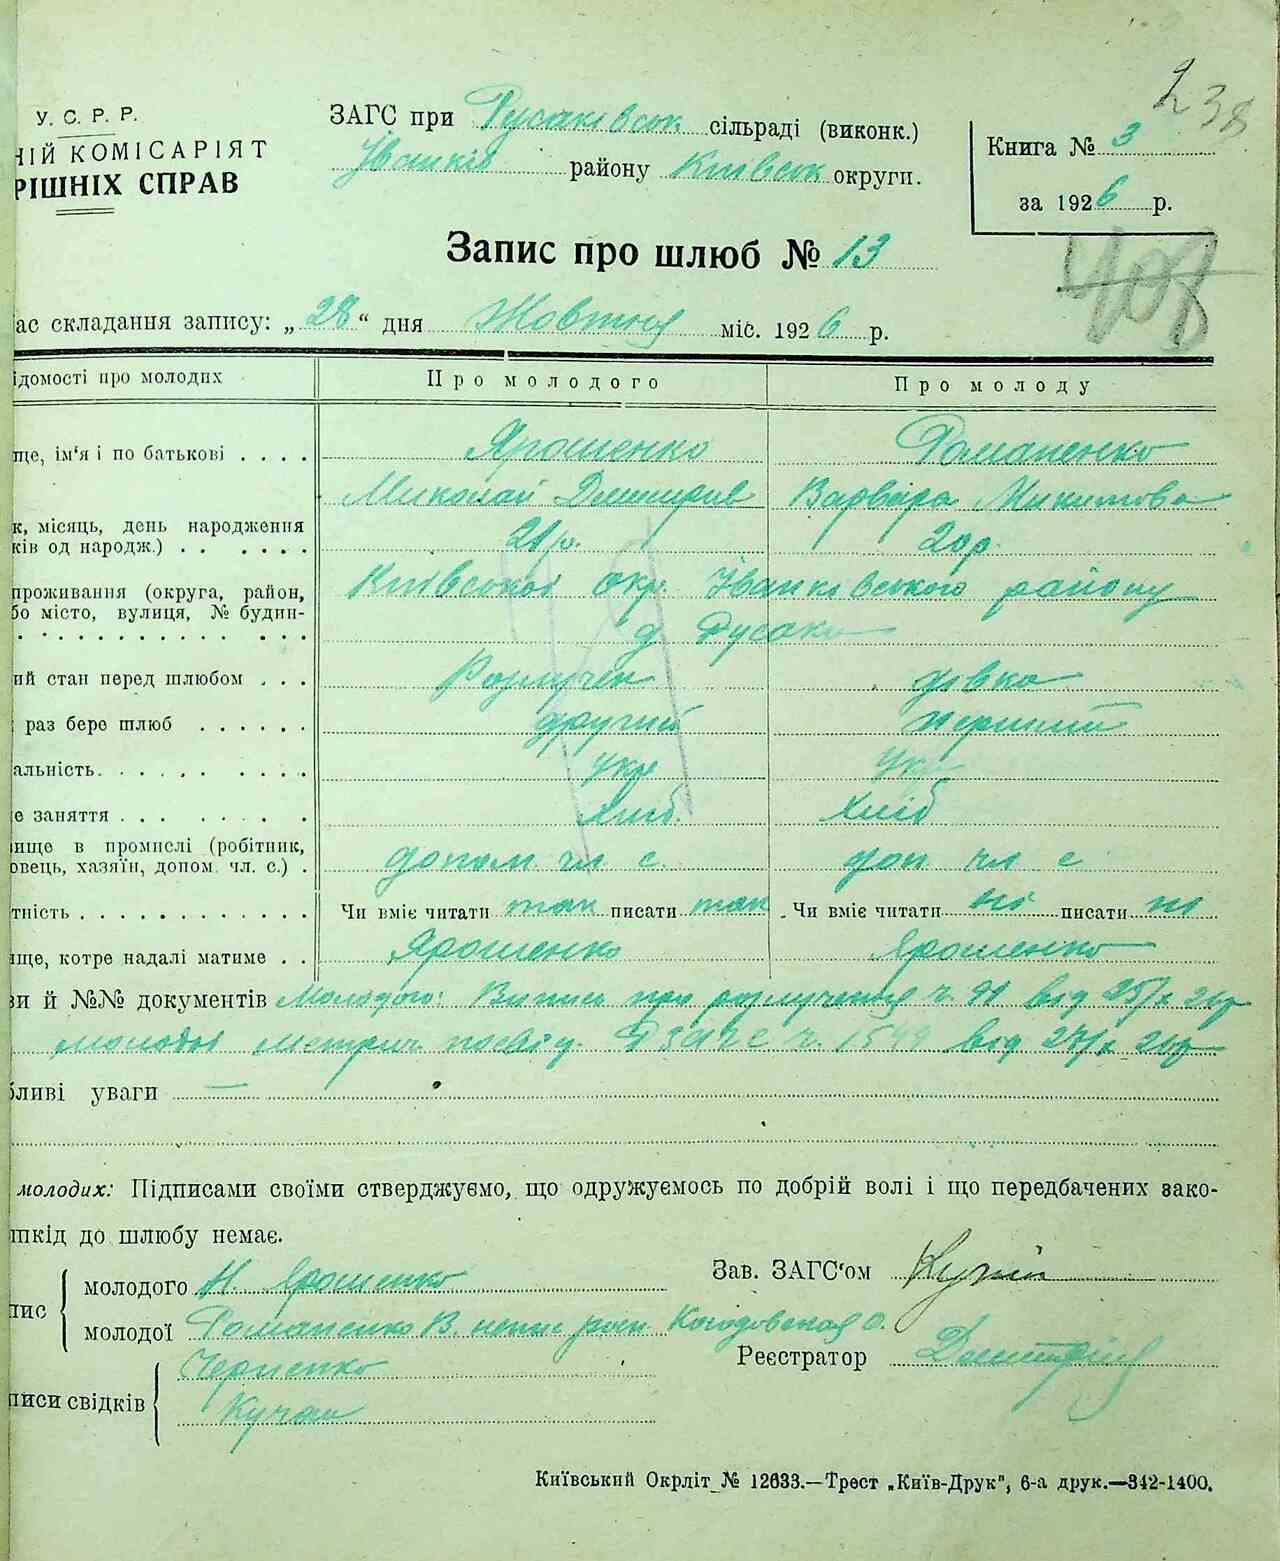 238
У. С. Р. Р.
НІЙ КОМІСАРІЯТ
РІШНІХ СПРАВ
ЗАГС при Русаківськ сільраді (виконк.)
Іванків району Київськ округи.
Книга № 3
за 1926 р.
Запис про шлюб № 13
408
ас складання запису: „28“ дня Жовтня міс. 1926 р.
ідомості про молодих Про молодого Про молоду
ще, ім‘я і по батькові . . . . Ярошенко Романенко
Миколай Дмитрів Варвара Микитова
к, місяць, день народження
ків од народж.) . . . . . . 21р. 20р.
проживання (округа, район, Київської окр. Іванківського району
бо місто, вулиця, № будин- д Русаки
ий стан перед шлюбом . . . Розлучен дівка
раз бере шлюб . . . . . . другий перший
альність. . . . . . . . . . укр укр
е заняття . . . . . . . . Хліб. Хліб
ище в промислі (робітник,
овець, хазяїн, допом. чл. с.) . допом. чл с. доп чл с
тність . . . . . . . . . . . . Чи вміє читати так писати так Чи вміє читати ні писати ні
ище, котре надалі матиме . . Ярошенко Ярошенко
зи й №№ документів Молодого: Випись про розлучення ч. 91 від 25/X 26р
молодої метрич. посвід. ч. від 27/X 26р
бливі уваги —
молодих: Підписами своїми стверджуємо, що одружуємось по добрій волі і що передбачених зако-
шкід до шлюбу немає.
пис молодого М. Ярошенко Зав. ЗАГС‘ом
молодої Романенко В. непис росп.
Реєстратор
писи свідків Черненко
Кучан
Київський Окрліт № 12633.—Трест „Київ-Друк“, 6-а друк.—342-1400.